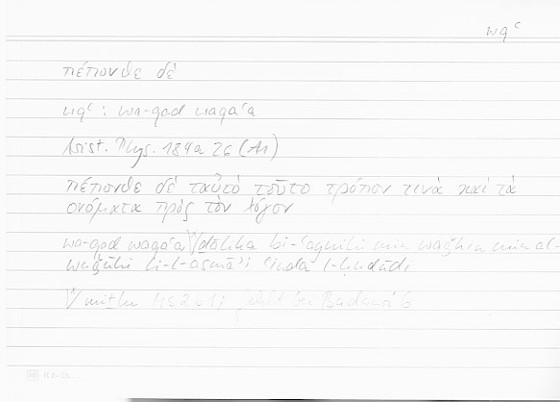 wqʿ
πέπονθε δέ
wqʿ : wa-qad waqaʿa
Arist. Phys. 184a 26 (A1)
πέπονθε δὲ ταὐτὸ τοῦτο τρόπον τινὰ καὶ τὰ
ὀνόματα πρὸς τὸν λόγον
wa-qad waqaʿa \/ ḏālika bi-ʿaynihī min waǧhin min al-
wuǧūhi li-l-asmāʾi ʿinda l-ḥudūdi
\/ miṯlu fehlt bei Badawī 6